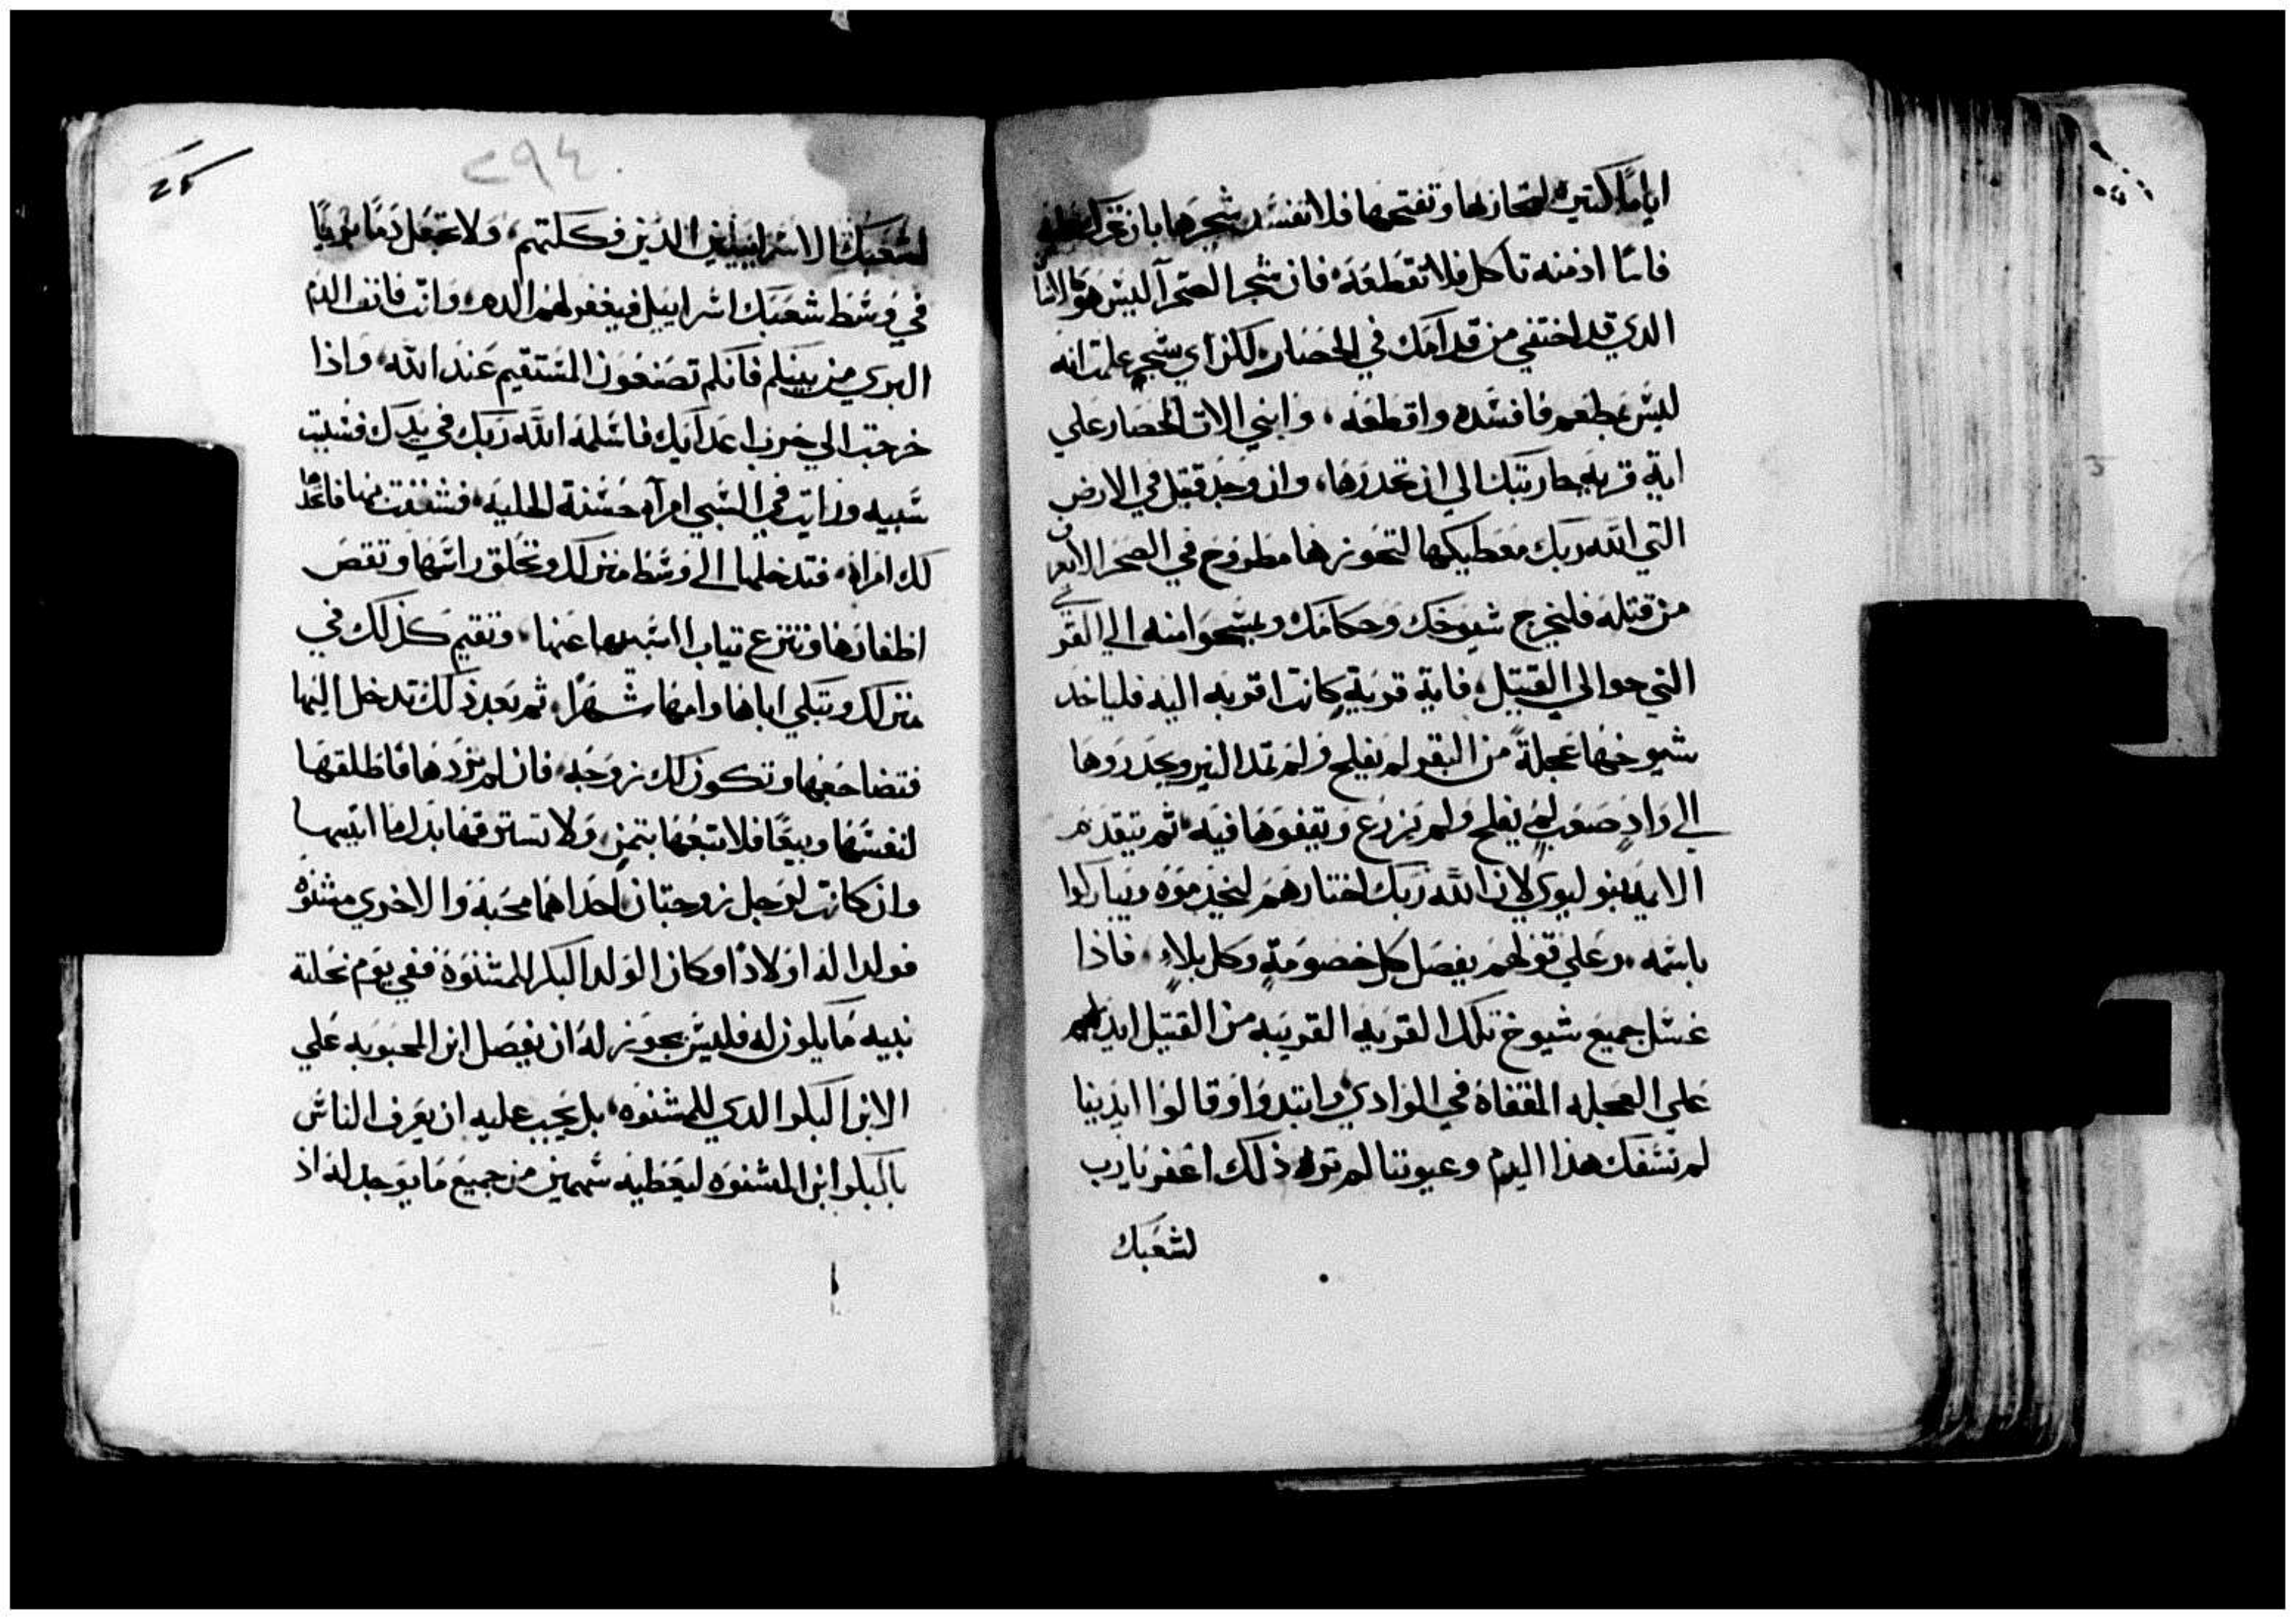 اياماً كتيره لتحاربها وتفتحها فلا تفسد شجرها بان تحرك عليه
فاسًا اذ منه تاكل فلا تقطعه فان شجر الصحرآ ليس هو كالانسان
الدي قد اختفي من قدامك في الحصار لكن اي شجر علمت انه
ليس بمطعم فافسده واقطعه، وابني الات الحصار علي
اية قرية حاربتك الي ان تحدرها، وان وجد قتيل في الارض
التي الله ربك معطيكها لتحوزها مطروح في الصحرا لا يعرف
من قتله فليخرج شيوخك وحكامك ويمسحوا منه الي القري
التي حوالي القتيل، فاية قرية كانت اقربه اليه فلياخد
شيوخها عجلةً من البقر لم يفلح ولم تمد النير ويحدروها
الي وادٍ صعب لم يفلح ولم يزرع ويقفوها فيه، ثم يتقدم
الايمه بنو ليوي لان الله ربك اختارهم ليخدموه ويباركوا
باسمه، وعلي قولهم يفصل كل خصومةٍ وكل بلاءٍ، فاذا
غسل جميع شيوخ تلك القريه القريبه من القتيل ايديهم
علي العجله المقفاة في الوادي وابتدوا وقالوا ايدينا
لم تسفك هذا الدم وعيوننا لم تره ذلك اغفر يا رب
لشعبك
٢٩٤
لشعبك الاسراييليين الدين فككلتهم، ولا تجعل دمًا بريًا
في وسط شعبك اسراييل فيغفر لهم الدم، وانت فانف الدم
البري من بينكم فانكم تصنعون المستقيم عند الله، واذا
خرجت الي حرب اعدآيك فاسلمه الله ربك في يدك فسبيت
سبيه ورايت في السبي امرآه حسنة الحليه، فشغفت بها فاتخدها
لك امراه، فتدخلها الي وسط منزلك وتحلق راسها وتقص
اظفارها وتنزع تياب السبي عنها، وتقيم كذلك في
منزلك وتبكي اباها وامها شهرًا، ثم بعد ذلك تدخل اليها
فتضاجعها وتكون لك زوجه، فان لم تردها فاطلقها
لنفسها وبيعًا فلا تبعها بتمن، ولا تسترقها بدل ما اتيتها
وان كانت لرجل زوجتان احداهما محبه والاخري مشنوه
فولدا له اولادًا وكان الولد البكر للمشنوة ففي يوم نحلته
بنيه ما يكون له فليس يجوز له ان يفصل ابن المحبوبه علي
الابن البكر الدي للمشنوه، بل يجب عليه ان يعرف الناس
بالبكر ابن المشنوه ليعطيه سهمين من جميع ما يوجد له اذ